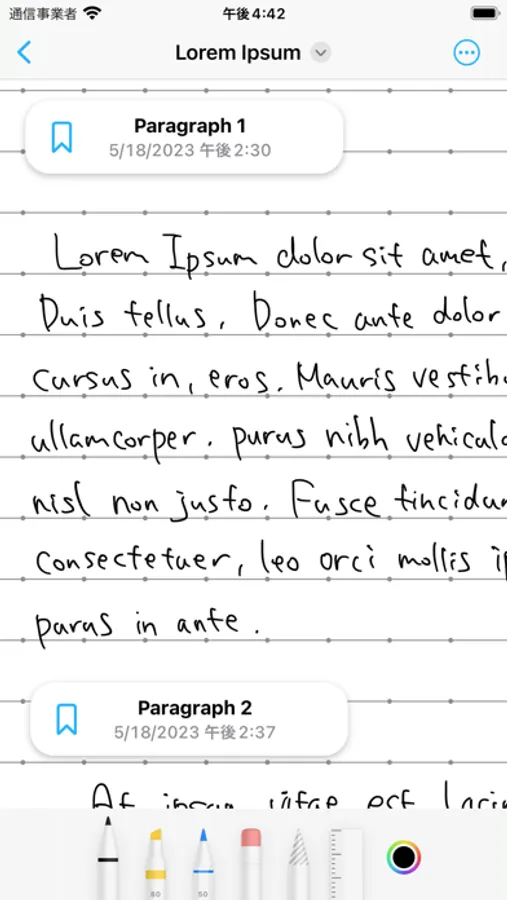 通信事業者 午後4:42
Lorem Ipsum
Paragraph 1
5/18/2023 午後2:30
Lorem Ipsum dolor sit amet,
Duis tellus. Donec ante dolor
cursus in, eros. Mauris vestibu
ullamcorper. purus nibh vehicula
nisl non justo. Fusce tincidun
consectetuer, leo orci mollis ip
purus in ante.
Paragraph 2
5/18/2023 午後2:37
At ipsum vitae est lacin
80 50